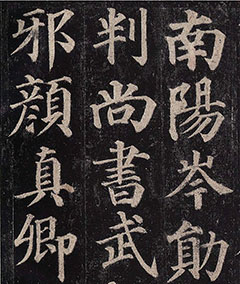 南陽岑勛
判尚書武
邪顏真卿